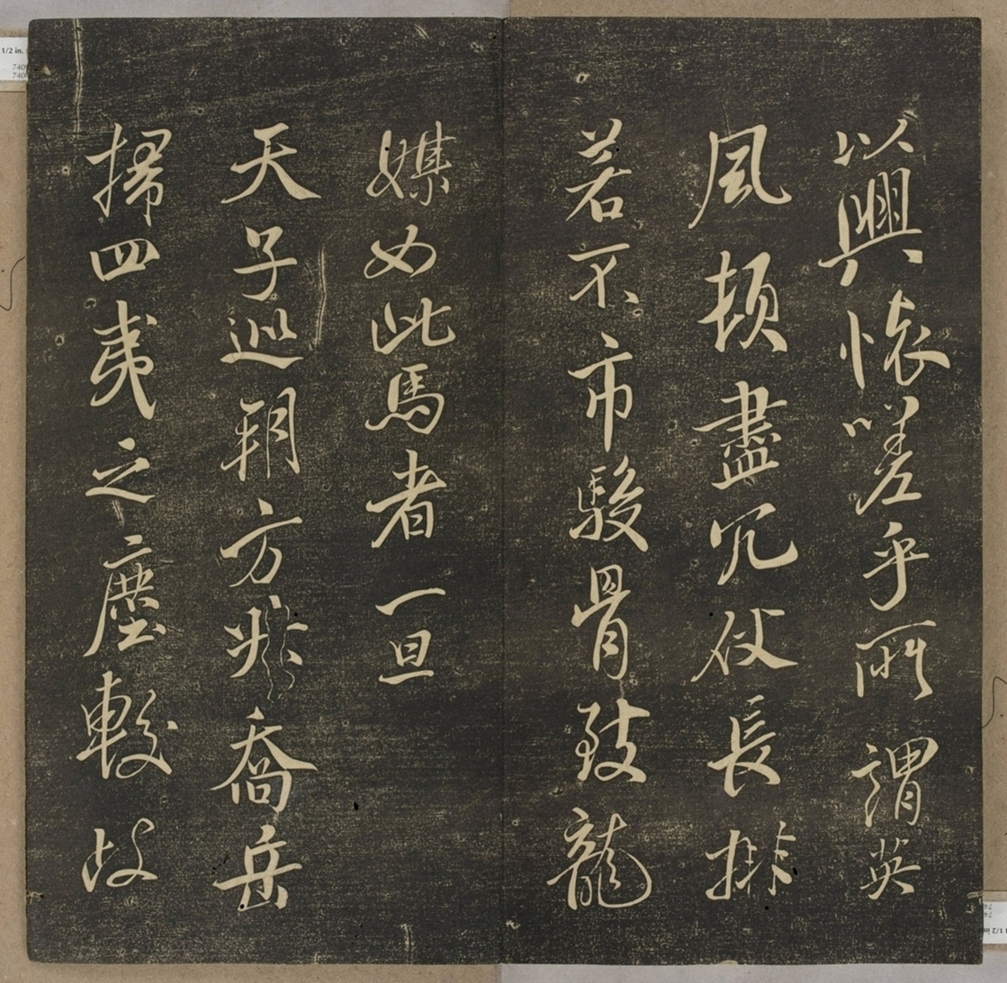 以興懷嗟乎所謂英
風頓盡冗仗長排
若不市駿骨致龍
媒如此馬者一旦
天子巡朔方升喬岳
掃四夷之塵較岐
1/2 in.